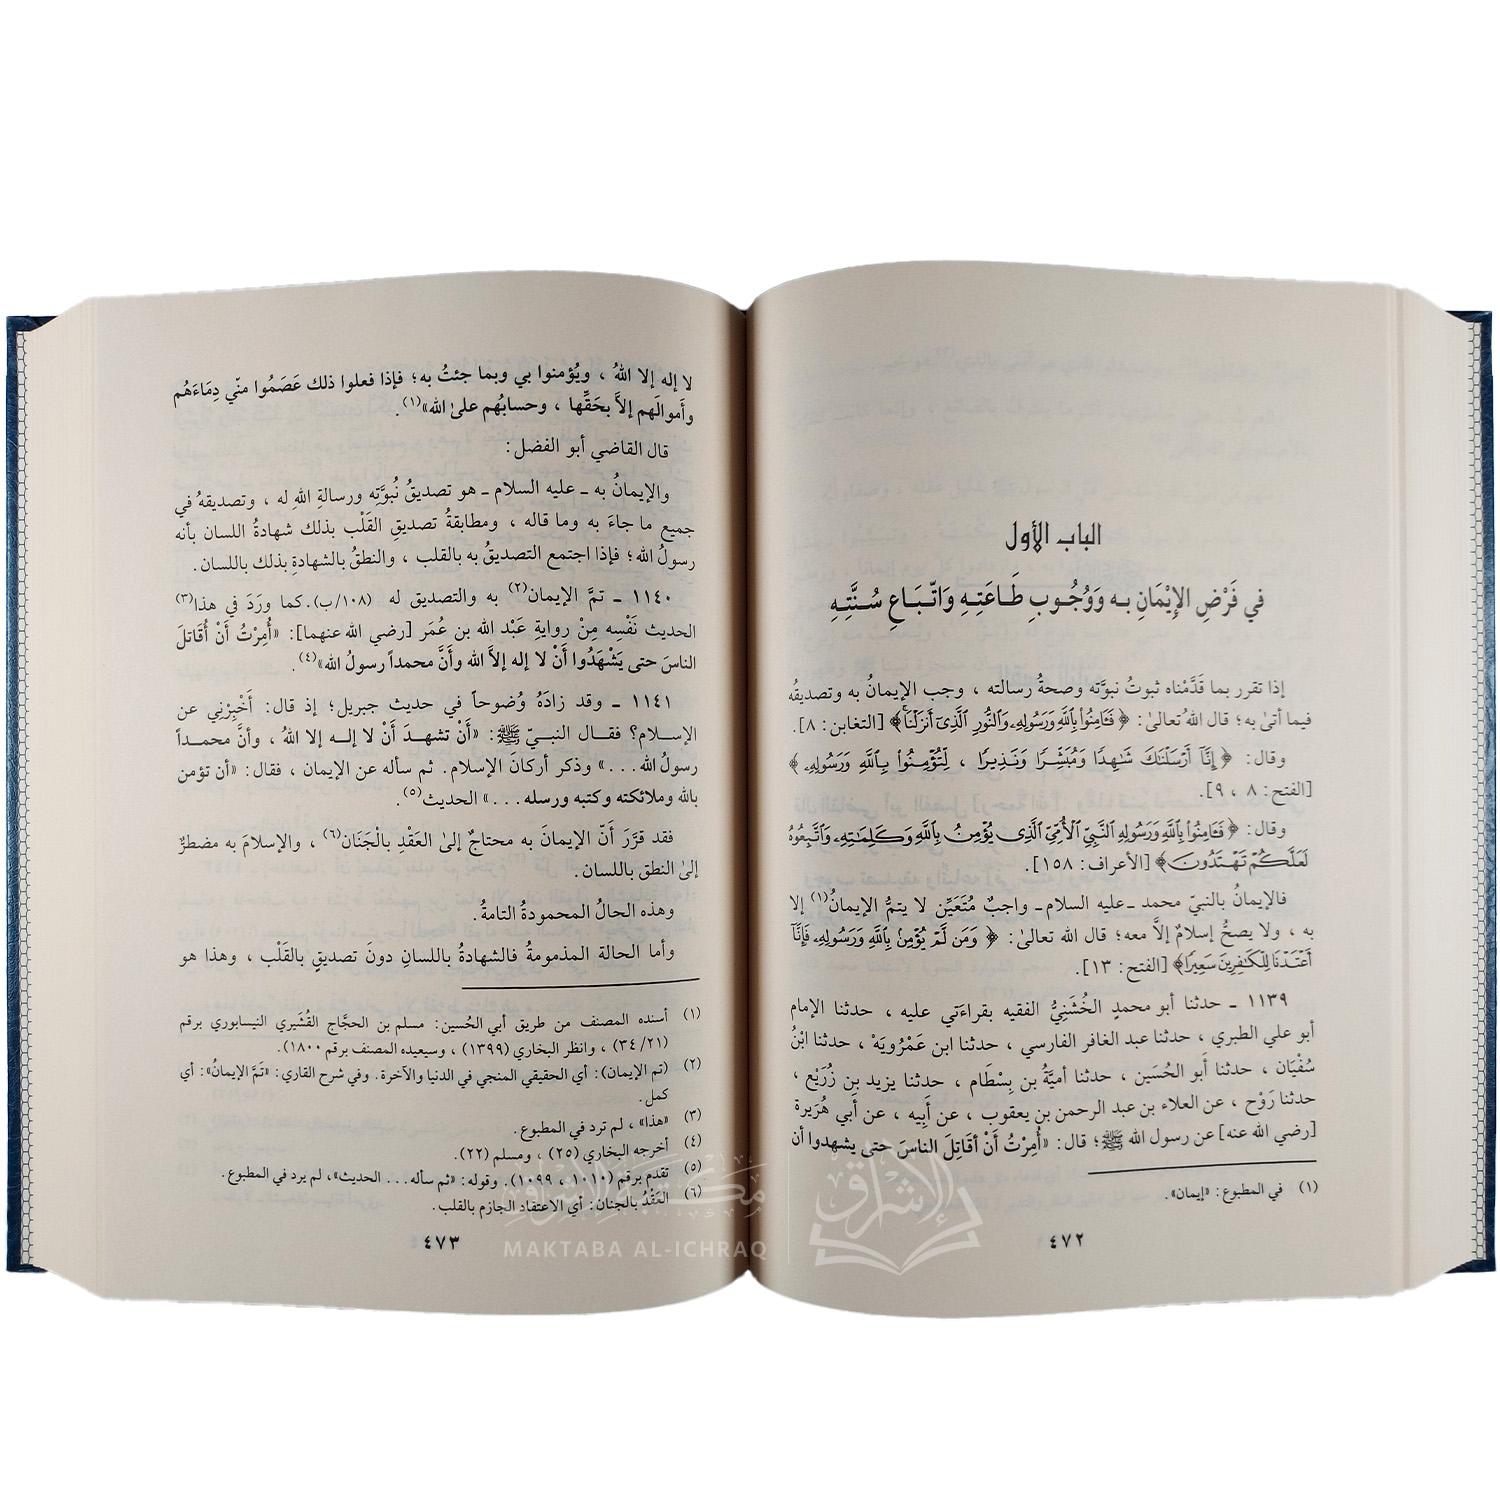 الباب الأول
في فَرْضِ الإِيْمَانِ بـه وَوُجُـوبِ طَـاعَتِـهِ وَاتّبَـاعِ سُـنَّتِـهِ
إذا تقرر بما قَدَّمْناه ثبوتُ نبوَّته وصحةُ رسالته ، وجب الإيمانُ به وتصديقُه
فيما أتىٰ به؛ قال اللهُ تعالىٰ: ﴿ فَـَٔامِنُوا۟ بِٱللَّهِ وَرَسُولِهِۦ وَٱلنُّورِ ٱلَّذِىٓ أَنزَلْنَا ﴾ [التغابن: ٨].
وقال: ﴿ إِنَّآ أَرْسَلْنَٰكَ شَٰهِدًا وَمُبَشِّرًا وَنَذِيرًا ، لِّتُؤْمِنُوا۟ بِٱللَّهِ وَرَسُولِهِۦ ﴾
[الفتح: ٨ ، ٩].
وقال: ﴿ فَـَٔامِنُوا۟ بِٱللَّهِ وَرَسُولِهِ ٱلنَّبِىِّ ٱلْأُمِّىِّ ٱلَّذِى يُؤْمِنُ بِٱللَّهِ وَكَلِمَٰتِهِۦ وَٱتَّبِعُوهُ
لَعَلَّكُمْ تَهْتَدُونَ ﴾ [الأعراف: ١٥٨].
فالإيمانُ بالنبيّ محمد ـ عليه السلام ـ واجبٌ مُتَعَيِّن لا يتمُّ الإيمانُ(١) إلا
به ، ولا يصحُّ إسلامٌ إلاَّ معه؛ قال الله تعالىٰ: ﴿ وَمَن لَّمْ يُؤْمِنۢ بِٱللَّهِ وَرَسُولِهِۦ فَإِنَّآ
أَعْتَدْنَا لِلْكَٰفِرِينَ سَعِيرًا ﴾ [الفتح: ١٣].
١١٣٩ ـ حدثنا أبو محمدٍ الخُشَنِيُّ الفقيه بقراءَتي عليه ، حدثنا الإمام
أبو علي الطبري ، حدثنا عبد الغافر الفارسي ، حدثنا ابن عَمْرُويَهْ ، حدثنا ابْنُ
سُفْيَان ، حدثنا أبو الحُسَين ، حدثنا أميَّةُ بن بِسْطَام ، حدثنا يزيد بن زُرَيْع ،
حدثنا رَوْح ، عن العلاء بن عبد الرحمن بن يعقوب ، عن أَبِيه ، عن أبي هُرَيرة
[رضي الله عنه] عن رسول الله ﷺ؛ قال: «أُمِرْتُ أنْ أُقاتِلَ الناسَ حتى يشهدوا أن
(١) في المطبوع: «إيمان».
٤٧٢
لا إله إلا اللهُ ، ويُؤمنوا بي وبما جئتُ به؛ فإذا فعلوا ذلك عَصَمُوا منّي دِمَاءَهُم
وأموالَهم إلاَّ بحَقِّها ، وحسابُهم علىٰ الله»(١) .
قال القاضي أبو الفضل:
والإيمانُ به ـ عليه السلام ـ هو تصديقُ نُبوَّتِه ورسالةِ اللهِ له ، وتصديقهُ في
جميع ما جاءَ به وما قاله ، ومطابقةُ تصديقِ القَلْب بذلك شهادةُ اللسان بأنه
رسولُ الله؛ فإذا اجتمع التصديقُ به بالقلب ، والنطقُ بالشهادةِ بذلك باللسان.
١١٤٠ ـ تمَّ الإيمان(٢) به والتصديق له (١٠٨/ب). كما ورَدَ في هذا(٣)
الحديث نَفْسِه مِنْ روايةِ عَبْد الله بن عُمَر [رضي الله عنهما]: «أُمِرْتُ أنْ أُقاتلَ
الناسَ حتى يَشْهَدُوا أَنْ لا إله إلاَّ الله وأنَّ محمداً رسولُ الله»(٤).
١١٤١ ـ وقد زادَهُ وُضوحاً في حديث جبريل؛ إذ قال: أَخْبِرْنِي عن
الإسـلام؟ فقـال النبـيّ ﷺ: «أَنْ تشهـدَ أنْ لا إلـه إلا اللهُ ، وأنَّ محمـداً
رسولُ الله . . .» وذكر أركانَ الإسلام. ثم سأله عن الإيمان ، فقال: «أن تؤمن
بالله وملائكته وكتبه ورسله . . .» الحديث(٥).
فقد قرَّرَ أنّ الإيمانَ به محتاجٌ إلىٰ العَقْدِ بالْجَنَان(٦) ، والإسلامَ به مضطرٌ
إلىٰ النطق باللسان.
وهذه الحالُ المحمودةُ التامةُ.
وأما الحالة المذمومةُ فالشهادةُ باللسانِ دونَ تصديقٍ بالقَلْب ، وهذا هو
(١) أسنده المصنف من طريق أبي الحُسين: مسلم بن الحجَّاج القُشَيري النيسابوري برقم
(٣٤/٢١) ، وانظر البخاري (١٣٩٩) ، وسيعيده المصنف برقم ١٨٠٠).
(٢) (تم الإيمان): أي الحقيقي المنجي في الدنيا والآخرة. وفي شرح القاري: «تَمَّ الإيمانُ»: أي
كمل.
(٣) «هذا» ، لم ترد في المطبوع.
(٤) أخرجه البخاري (٢٥) ، ومسلم (٢٢).
(٥) تقدم برقم (١٠١٠ ، ١٠٩٩). وقوله: «ثم سأله. . . الحديث»، لم يرد في المطبوع.
(٦) العَقْدُ بالجنان: أي الاعتقاد الجازم بالقلب.
٤٧٣
مكتبة الإشراق
MAKTABA AL-ICHRAQ
الإشراق